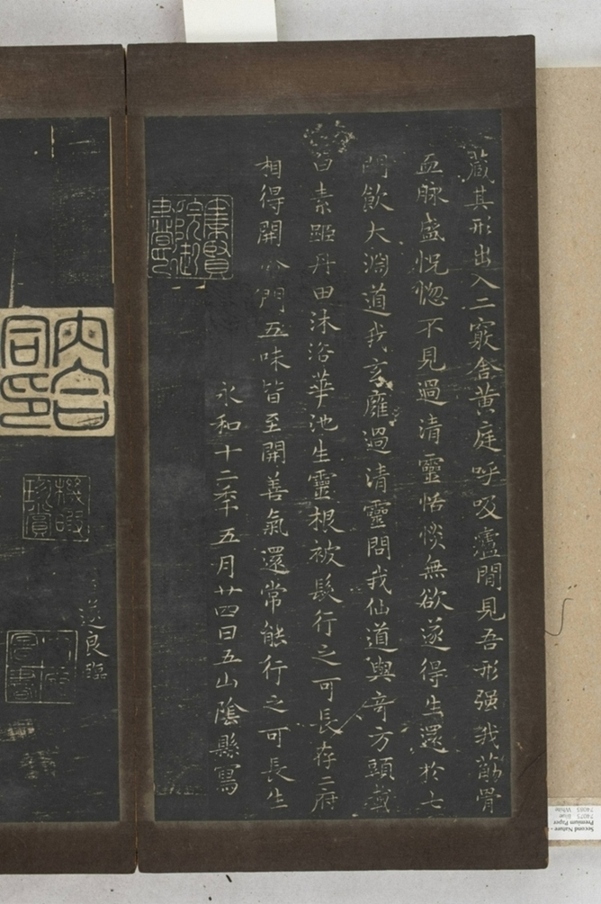 藏其形出入二竅舍黃庭呼吸廬間見吾形强我筋骨
血脉盛恍惚不見過清靈恬惔無欲遂得生還於七
門飲大淵道我玄靡過清靈問我仙道與奇方頭戴
白素距丹田沐浴華池生靈根被髮行之可長存二府
相得開命門五味皆至開善氣還常能行之可長生
永和十二年五月廿四日五山陰縣寫
集賢院御書印
內合同印
遂良臨
Second Nature -
Premium Paper
74071 Blue
74093 White